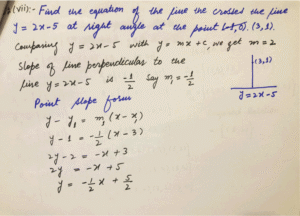 (vii):- Find the equation of the line the crosses the line
y = 2x-5 at right angle at the point (3,1).
Comparing y = 2x-5 with y = mx+c, we get m = 2
Slope of line perpendicular to the
line y = 2x-5 is -1/2 say m₁ = -1/2
(3,1)
y = 2x-5
Point slope form
y - y₁ = m₁ (x - x₁)
y - 1 = -1/2 (x - 3)
2y - 2 = -x + 3
2y = -x + 5
y = -1/2 x + 5/2